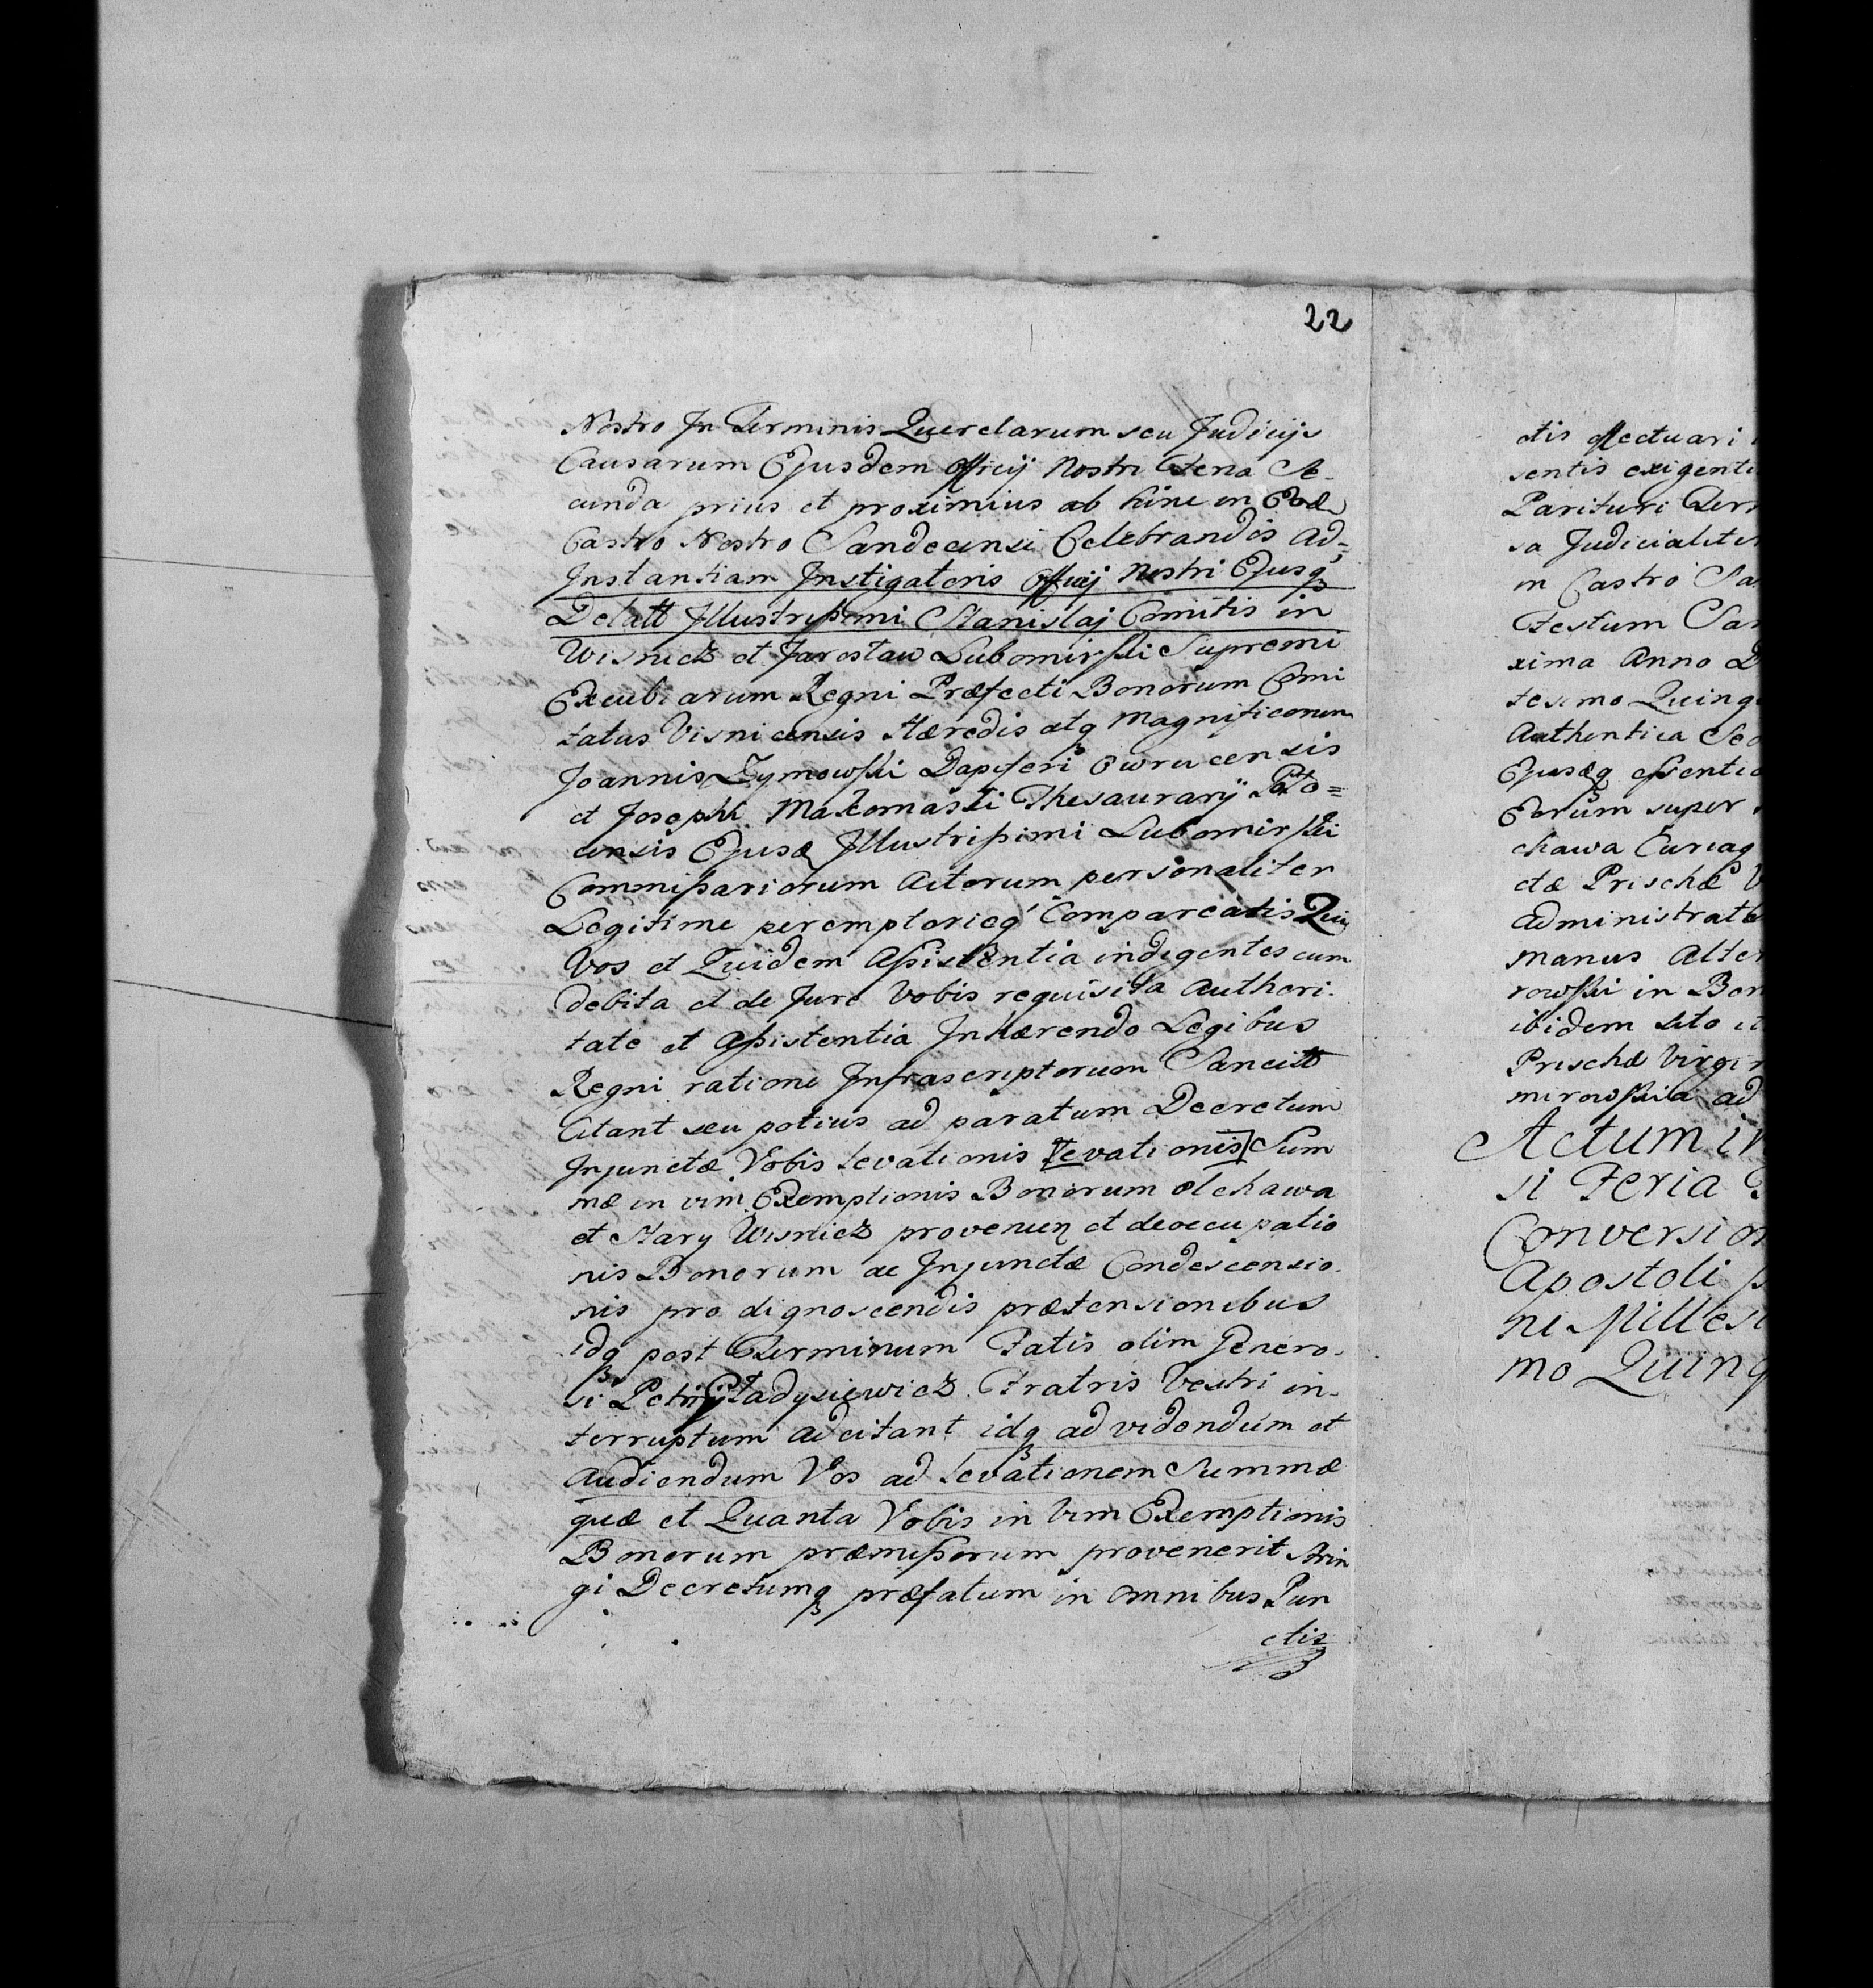 22
Nostro In Terminis Querelarum seu Judicijs
Causarum Ejusdem Officij Nostri Feria Se-
cunda prius et proximius ab hinc in
Castro Nostro Sandecensi Celebrandis ad=
Instantiam Instigatoris Officij Nostri Ejusq́
Delatt Illustrißimi Stanislaj Comitis in
Wisnicz et Jarosław Lubomirski Supremi
Excubiarum Regni Præfecti Bonorum Comi
tatus Visnicensis Hæredis atq Magnificorum
Joannis Zymowski Dapiferi Owrucensis
et Josephi Makomaski Thesaurarij
censis Ejusd Illustrißimi Lubomirski
Commißariorum Actorum personaliter
Legitime peremptorieq́ Compareatis Qui
Vos et Quidem Aßistentia indigentes cum
debita et de Jure Vobis requisita Authori-
tate et Aßistentia Inhærendo Legibus
Regni ratione Infrascriptorum Sancitt
Citant seu potius ad paratum Decretum
Injunctæ Vobis levationis levationis Sum
mæ in vim Exemptionis Bonorum Olchawa
et Stary Wisnicz provenien et deoccupatio
nis Bonorum ac Injunctæ Condescensio-
nis pro dignoscendis prætensionibus
idq post Terminum Fatis olim Genero-
si Petri Gładysiewicz Fratris Vestri in-
terruptum adcitant idq ad videndum et
Audiendum Vos ad levationem Summæ
quæ et Quanta Vobis in Vim Exemptionis
Bonorum præmißorum provenerit Strin
gi Decretumq præfatum in omnibus Pun
ctis
ctis effectuari
sentis exigenti
Parituri Ter
sa Judicialiter
in Castro Sa
Festum San
xima Anno D
tesimo Quing
Authentica
Ejusdq eßentia
Eorum super
chawa Curiaq
ctæ Prischæ V
administrat
manus Alter
rowski in Bon
ibidem sito et
Prischæ Virgin
mirowskia ad
Actum in
si Feria
Conversion
Apostoli p
ni Millesi
mo Quinq